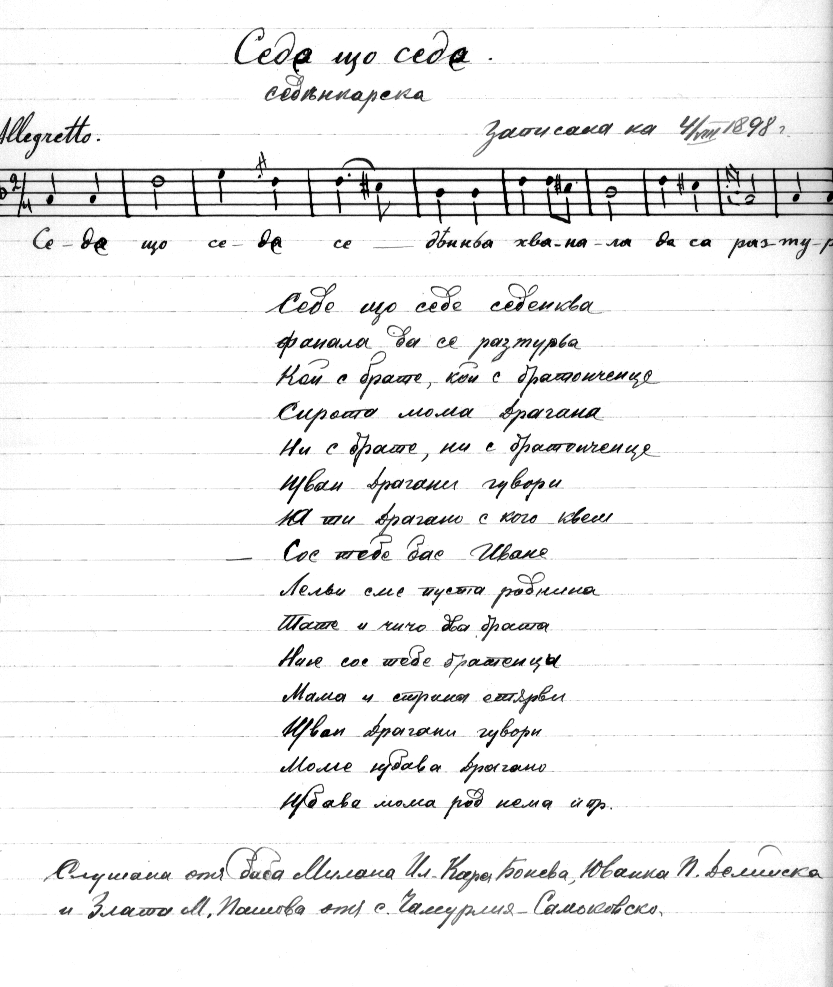 Седа що седа.
седѣнкарска
Allegretto.
Записана на 4/VIII 1898 г.
2/4
Се-да що се-да се — дѣнкьа хва-на-ла да са раз-ту-р
Седе що седе седенква
фанала да се разтурва
Кой с брате, кой с братонченце
Сирота мома Драгана
Ни с брате, ни с братонченце
Иван Драгани гувори
Ю ти Драгано с кого
— Сос тебе бас Иване
сме пуста роднина
Тате и чичо два брата
Ние сос тебе братенци
Мама и стрина етярви
Иван Драгани гувори
Моме хубава Драгано
Хубава мома род нема и пр.
Слушана отъ баба Милана Ил. Кара Бонева, Юванка П. Делийска
и Злата М. Пашова отъ с. Чамурлия-Самоковско.